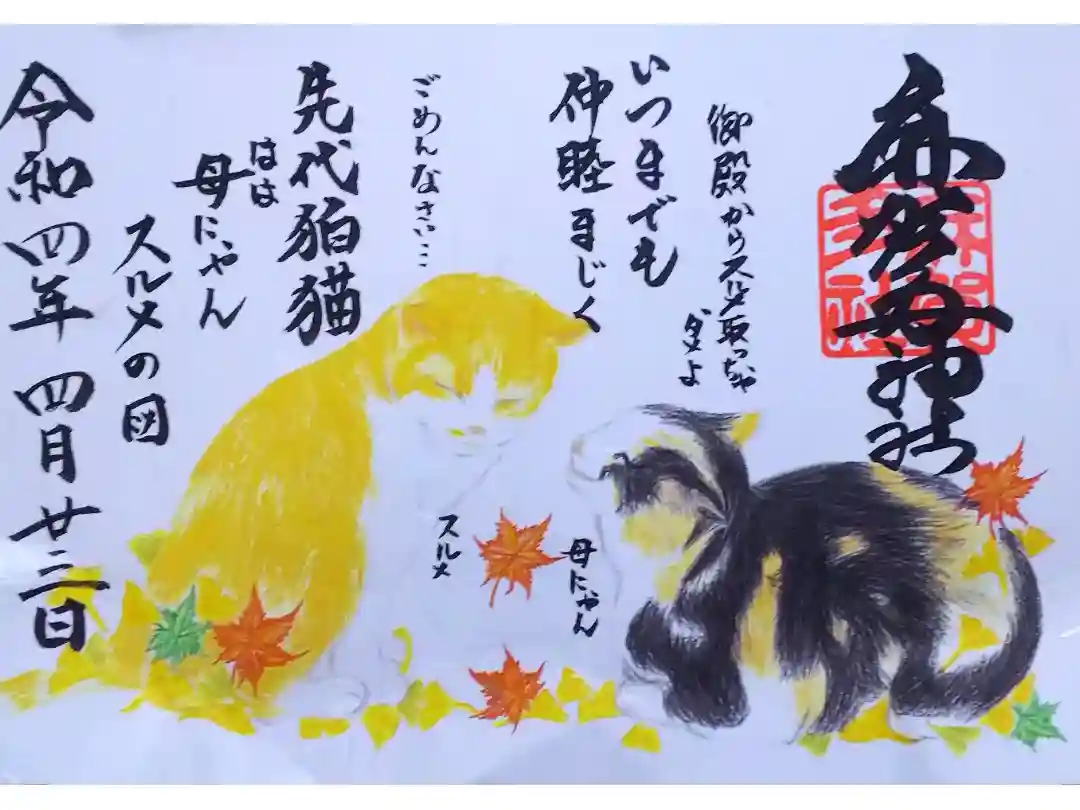 神社
御殿からスルメ取っちゃ
ダメよ
いつまでも
仲睦まじく
ごめんなさい…
先代狛猫
はは
母にゃん
スルメの図
令和四年 四月廿三日
スルメ
母にゃん